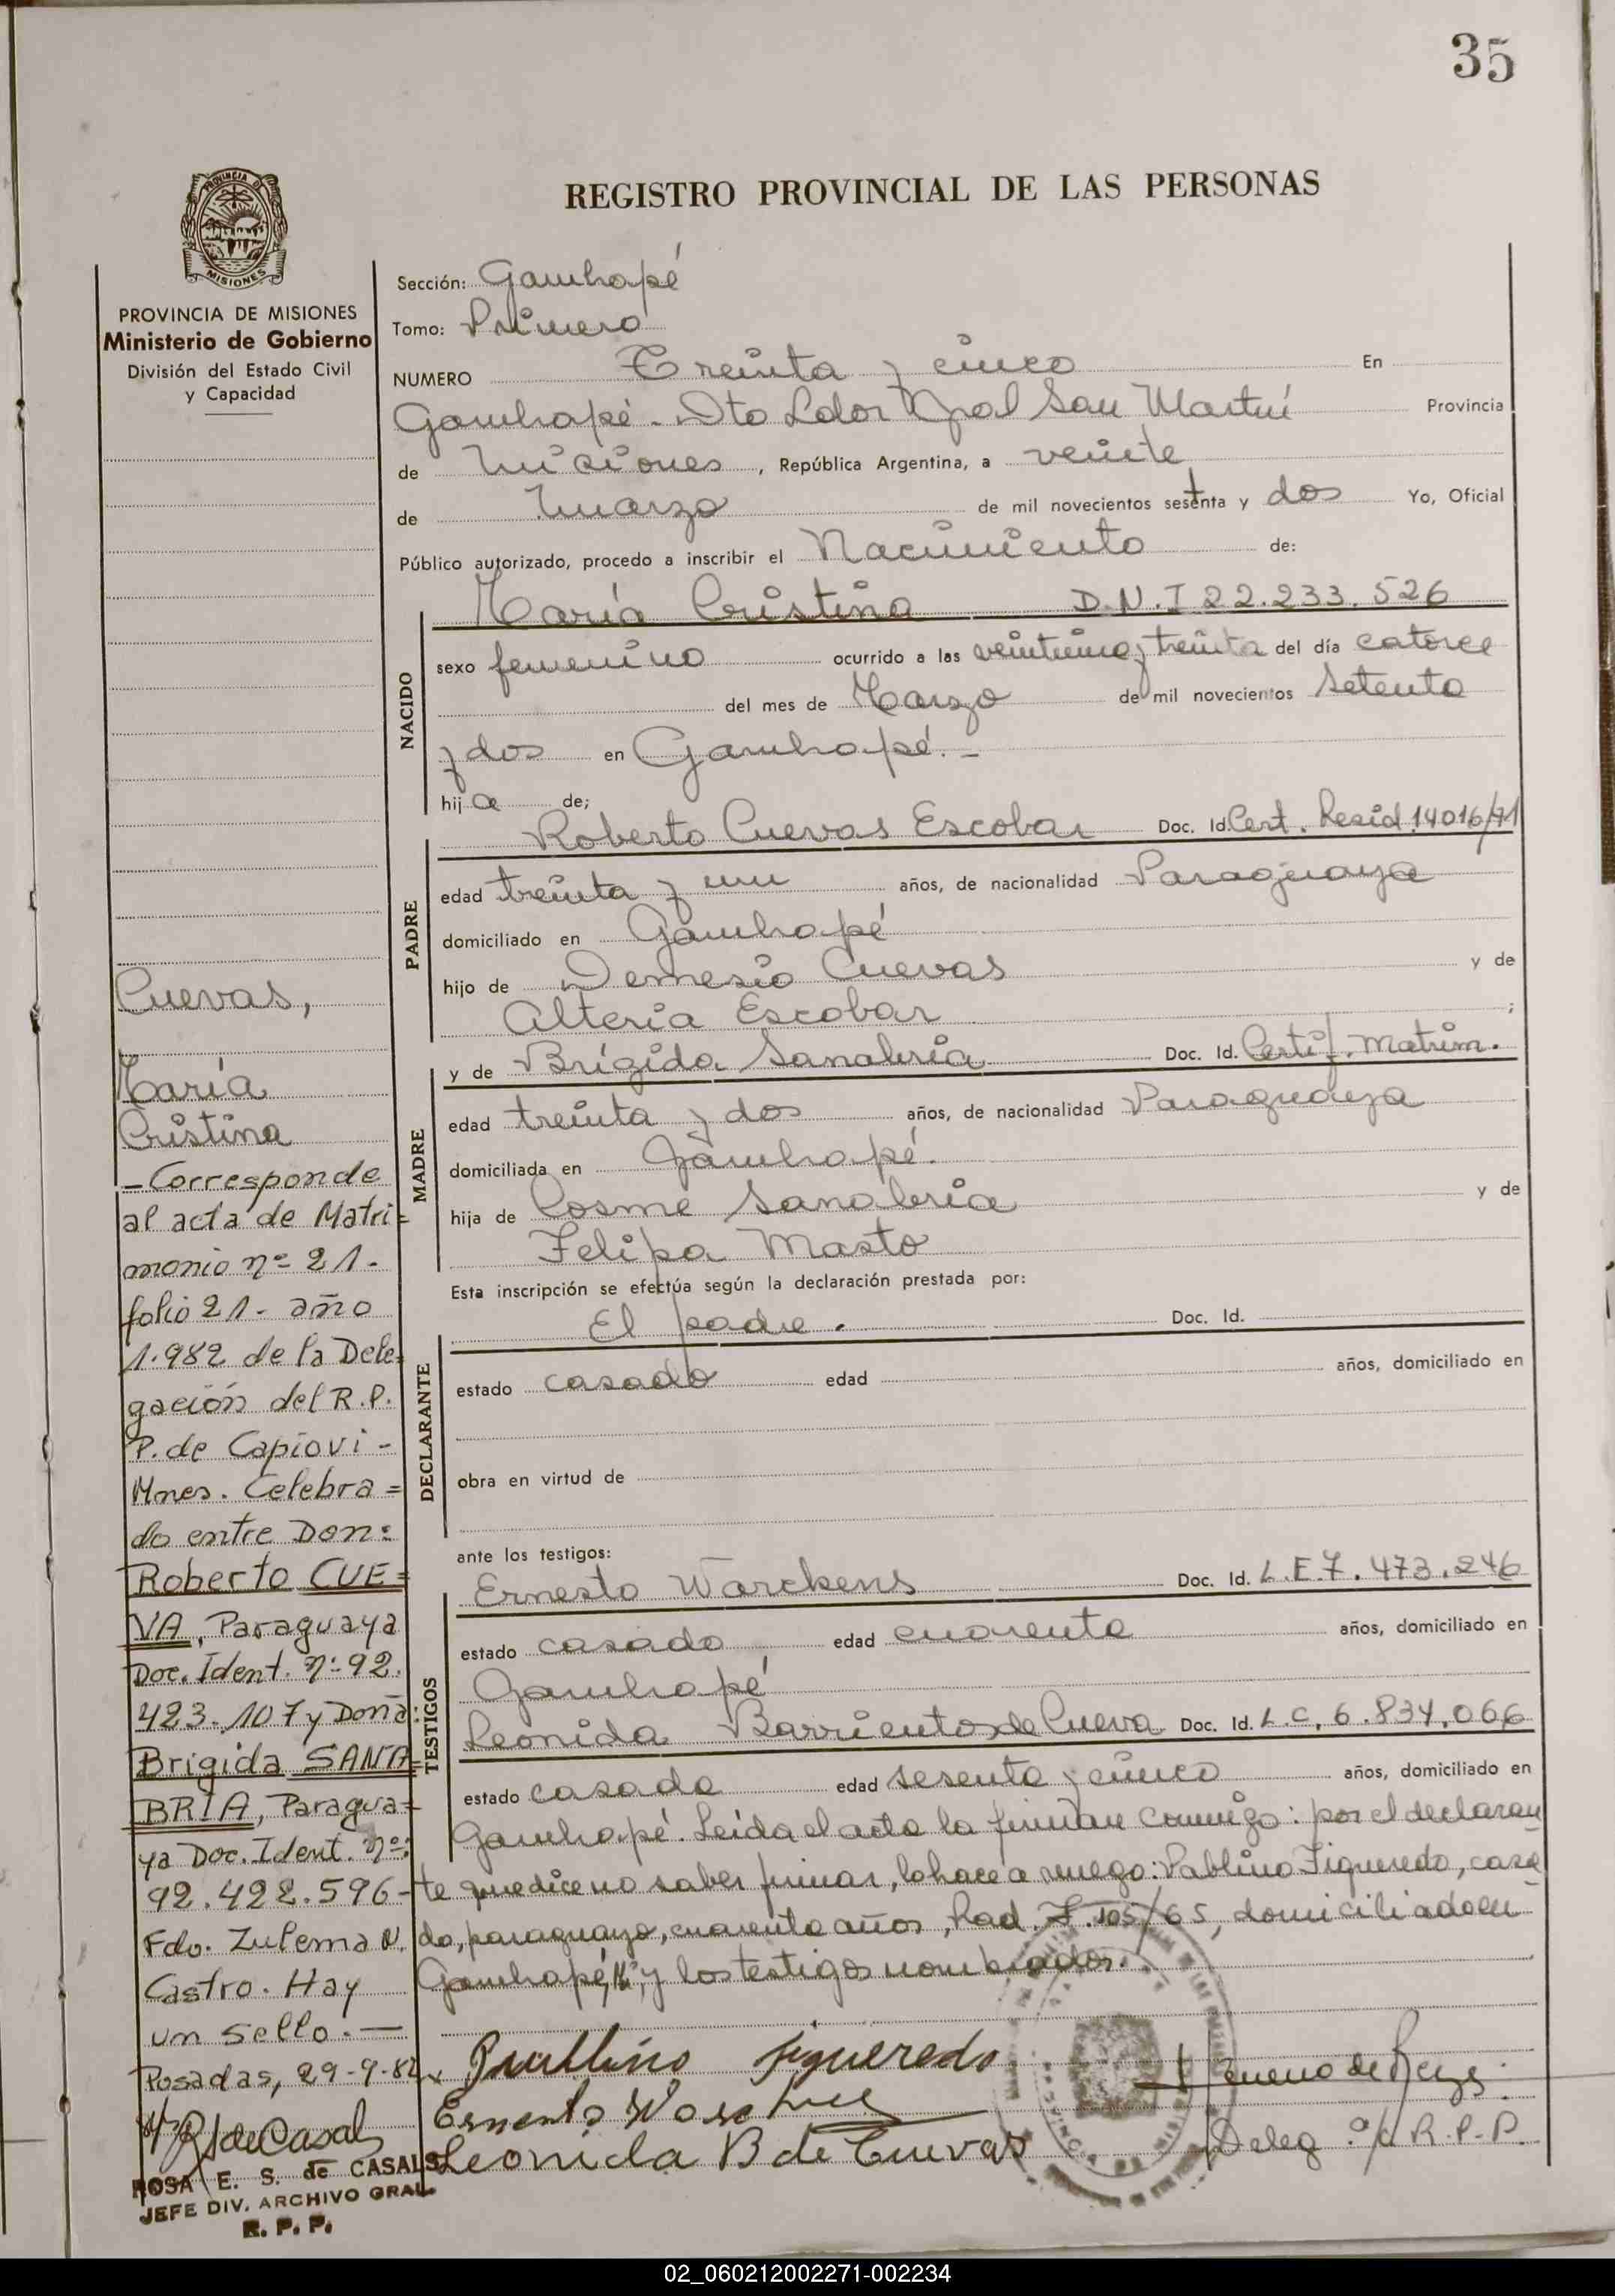 35
REGISTRO PROVINCIAL DE LAS PERSONAS
PROVINCIA DE
MISIONES
PROVINCIA DE MISIONES
Ministerio de Gobierno
División del Estado Civil
y Capacidad
Sección: Garuhapé
Tomo: Primero
NUMERO Treinta y cinco En
Garuhapé - Dto Ldor Gral San Martín Provincia
de Misiones, República Argentina, a veinte
de Marzo de mil novecientos setenta y dos Yo, Oficial
Público autorizado, procedo a inscribir el Nacimiento de:
María Cristina D.N.I 22.233.526
NACIDO
sexo femenino ocurrido a las veintiuna y treinta del día catorce
del mes de Marzo de mil novecientos setenta
y dos en Garuhapé.-
hija de;
Roberto Cuevas Escobar Doc. Id. Cert. Resid 14016/71
PADRE
edad treinta y un años, de nacionalidad Paraguaya
domiciliado en Garuhapé
hijo de Demesio Cuevas y de
Alteria Escobar ;
y de Brígida Sanabria Doc. Id. Certif. Matrim.
MADRE
edad treinta y dos años, de nacionalidad Paraguaya
domiciliada en Garuhapé.
hija de Cosme Sanabria y de
Felipa Masto
Esta inscripción se efectúa según la declaración prestada por:
El padre. Doc. Id.
DECLARANTE
estado casado edad años, domiciliado en
obra en virtud de
ante los testigos:
Ernesto Warckens Doc. Id. L.E 7.473.246
TESTIGOS
estado casado edad cuarenta años, domiciliado en
Garuhapé
Leonida Barrientos de Cueva Doc. Id. L.C. 6.834.066
estado casada edad sesenta y cinco años, domiciliado en
Garuhapé. Leída el acta la firman conmigo: por el declaran
te que dice no saber firmar, lo hace a ruego: Pablino Figueredo, casa
do, paraguayo, cuarenta años, Rad. F. 105/65, domiciliado en
Garuhapé, y los testigos nombrados.
Cuevas,
María
Cristina
- Corresponde
al acta de Matri=
monio nº 21-
folio 21- año
1.982 de la Dele=
gación del R.P.
P. de Capioví -
Mnes. Celebra=
do entre Don:
Roberto CUE=
VA, Paraguaya
Doc. Ident. nº 92.
423.107 y Doña:
Brigida SANA=
BRIA, Paragua=
ya Doc. Ident. nº:
92.422.596-
Fdo. Zulema N.
Castro. Hay
un sello.—
Posadas, 29-9-82
RSdeCasals
ROSA E. S. de CASALS
JEFE DIV. ARCHIVO GRAL.
R. P. P.
Paullino Figueredo
Ernesto
Leonida B de Cuevas
de Reys
Deleg º/c R.P.P.
02_060212002271-002234